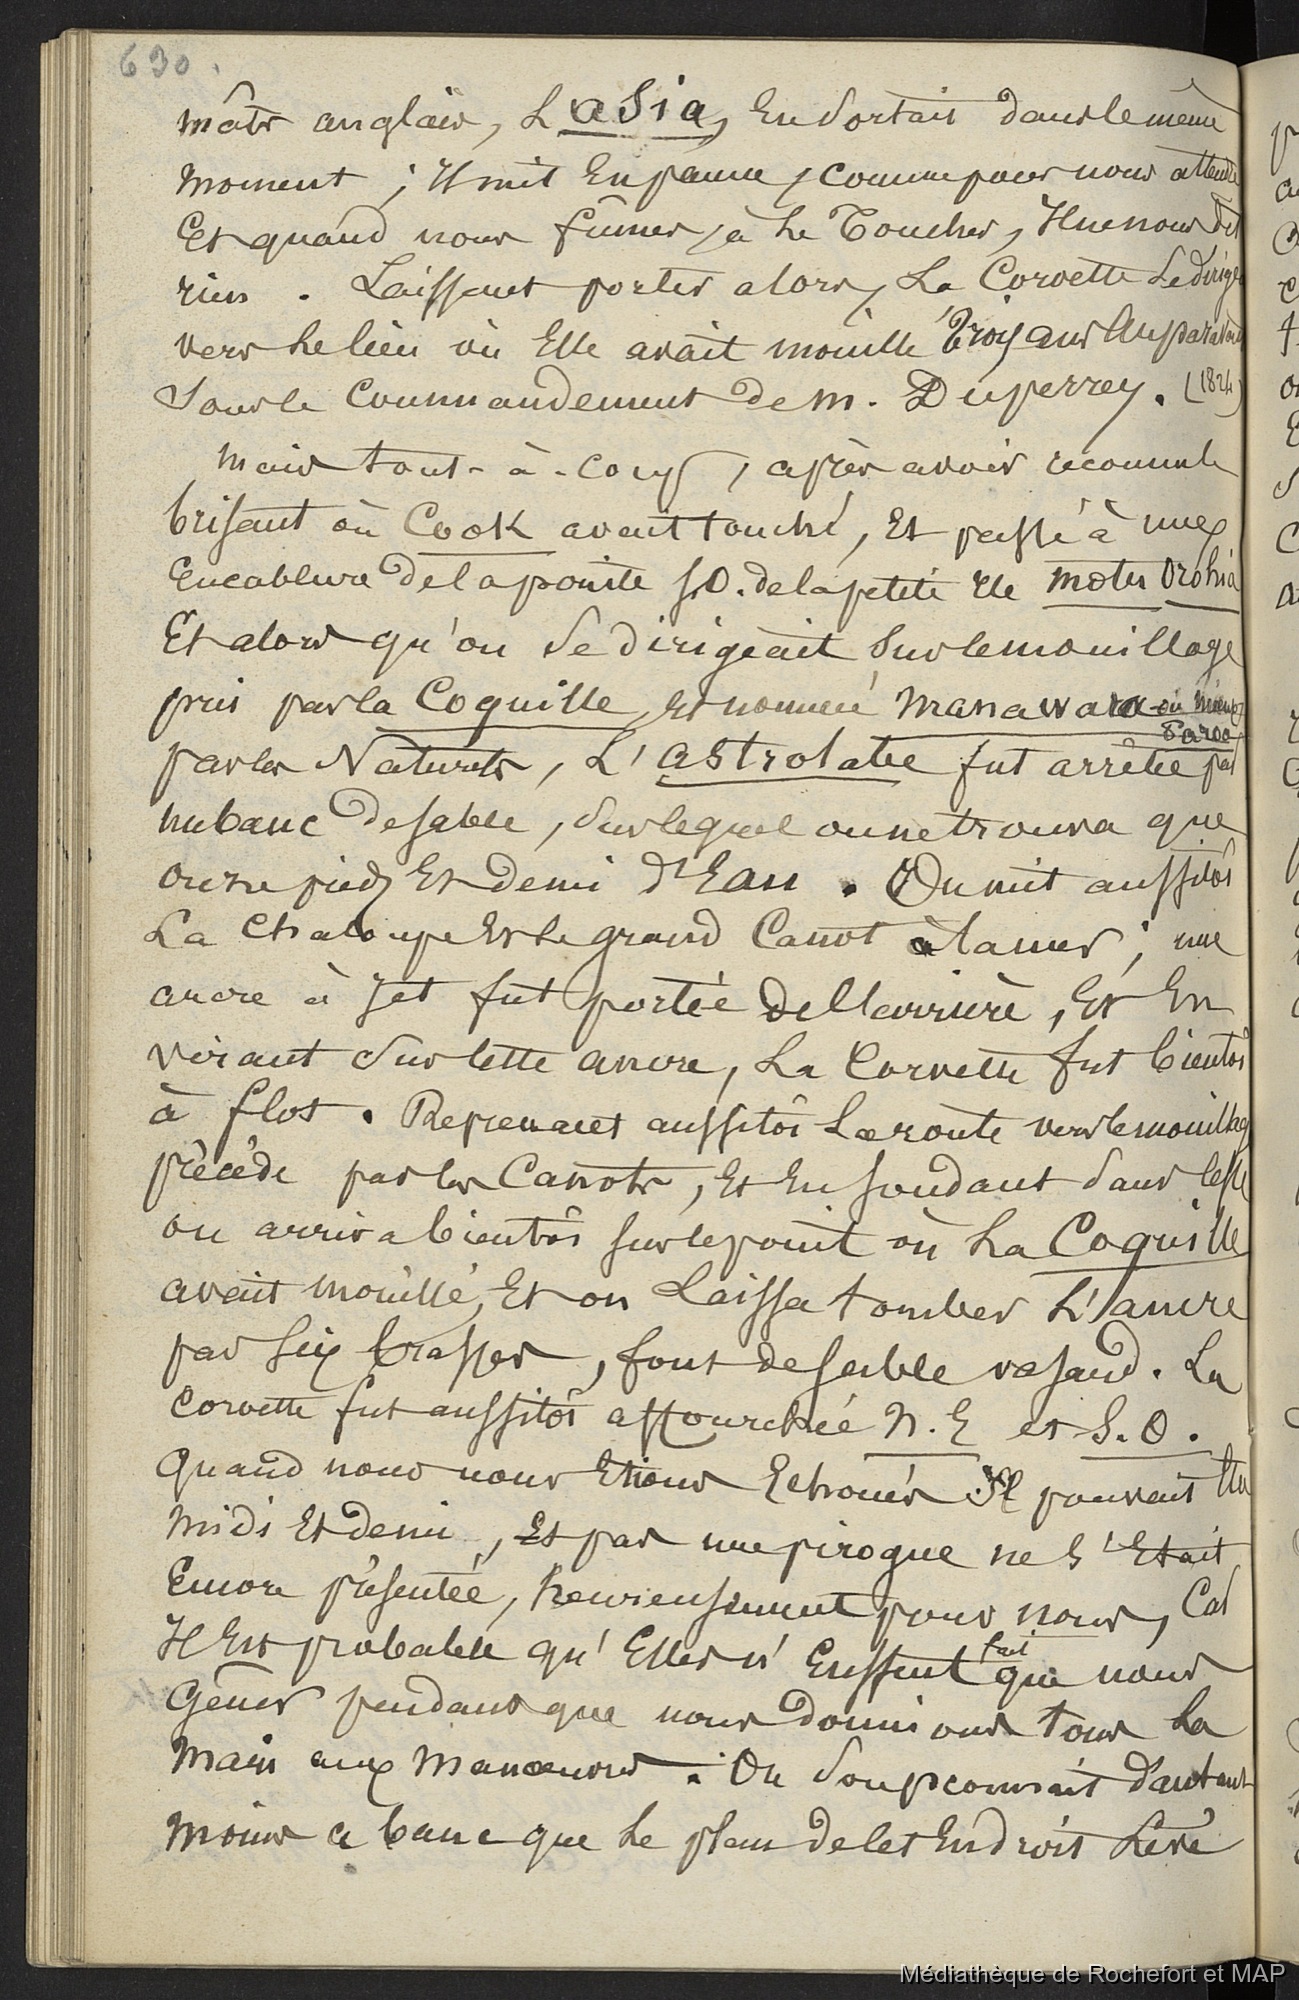 630.
mâts anglais, L'asia, En Sortait dans le même
moment ; Il mit En panne, comme pour nous attendre
Et quand nous fûmes, à Le Toucher, Il ne nous dit
rien . Laissant porter alors, La Corvette Se dirigea
vers Le lieu où Elle avait mouillé Trois ans Auparavant
Sous le Commandement de M. Duperrey. (1824)
Mais tout-à-coup, après avoir reconnu le
brisant où Cook avait touché, Et passé à une
Encablure de la pointe S.O. de la petite Ile Motu Orohia
Et alors qu'on Se dirigeait Sur le mouillage
pris par la Coquille, Et nommé Manawara ou mieux
Paroa
par les Naturels, L'astrolabe fut arrêtée par
un banc de sable, Sur lequel on ne trouva que
onze pieds Et demi d'Eau . On mit aussitôt
La Chaloupe Et Le grand Canot à la mer ; une
ancre à Jet fut portée de l'arrière, Et En
virant Sur cette ancre, La Corvette fut bientôt
à flot . Reprenant aussitôt La route vers le mouillage
précédé par les Canots, Et En sondant Sans cesse
on arriva bientôt sur le point où La Coquille
avait mouillé, Et on Laissa tomber L'ancre
par six brasses, fond de sable vasard. La
Corvette fut aussitôt affourchée N.E et S.O.
Quand nous nous Etions Echoués Il pouvait Etre
midi Et demi, Et pas une pirogue ne s'Etait
Encore présentée, heureusement pour nous, Car
Il Est probable qu'Elles n'Eussent fait que nous
Gêner pendant que nous donnions tous La
Main aux Manoeuvres . On Soupçonnait d'autant
Moins ce banc que Le plan de cet Endroit Levé
Médiathèque de Rochefort et MAP